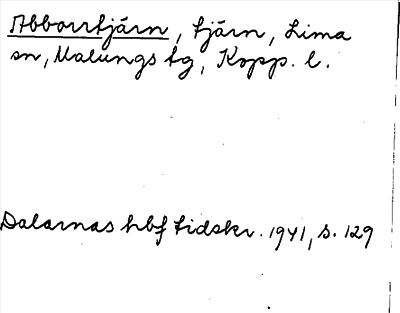 Abborrtjärn, tjärn, Lima
sn, Malungs tg, Kopp. l.
Dalarnas hbf tidskr. 1941, s. 129